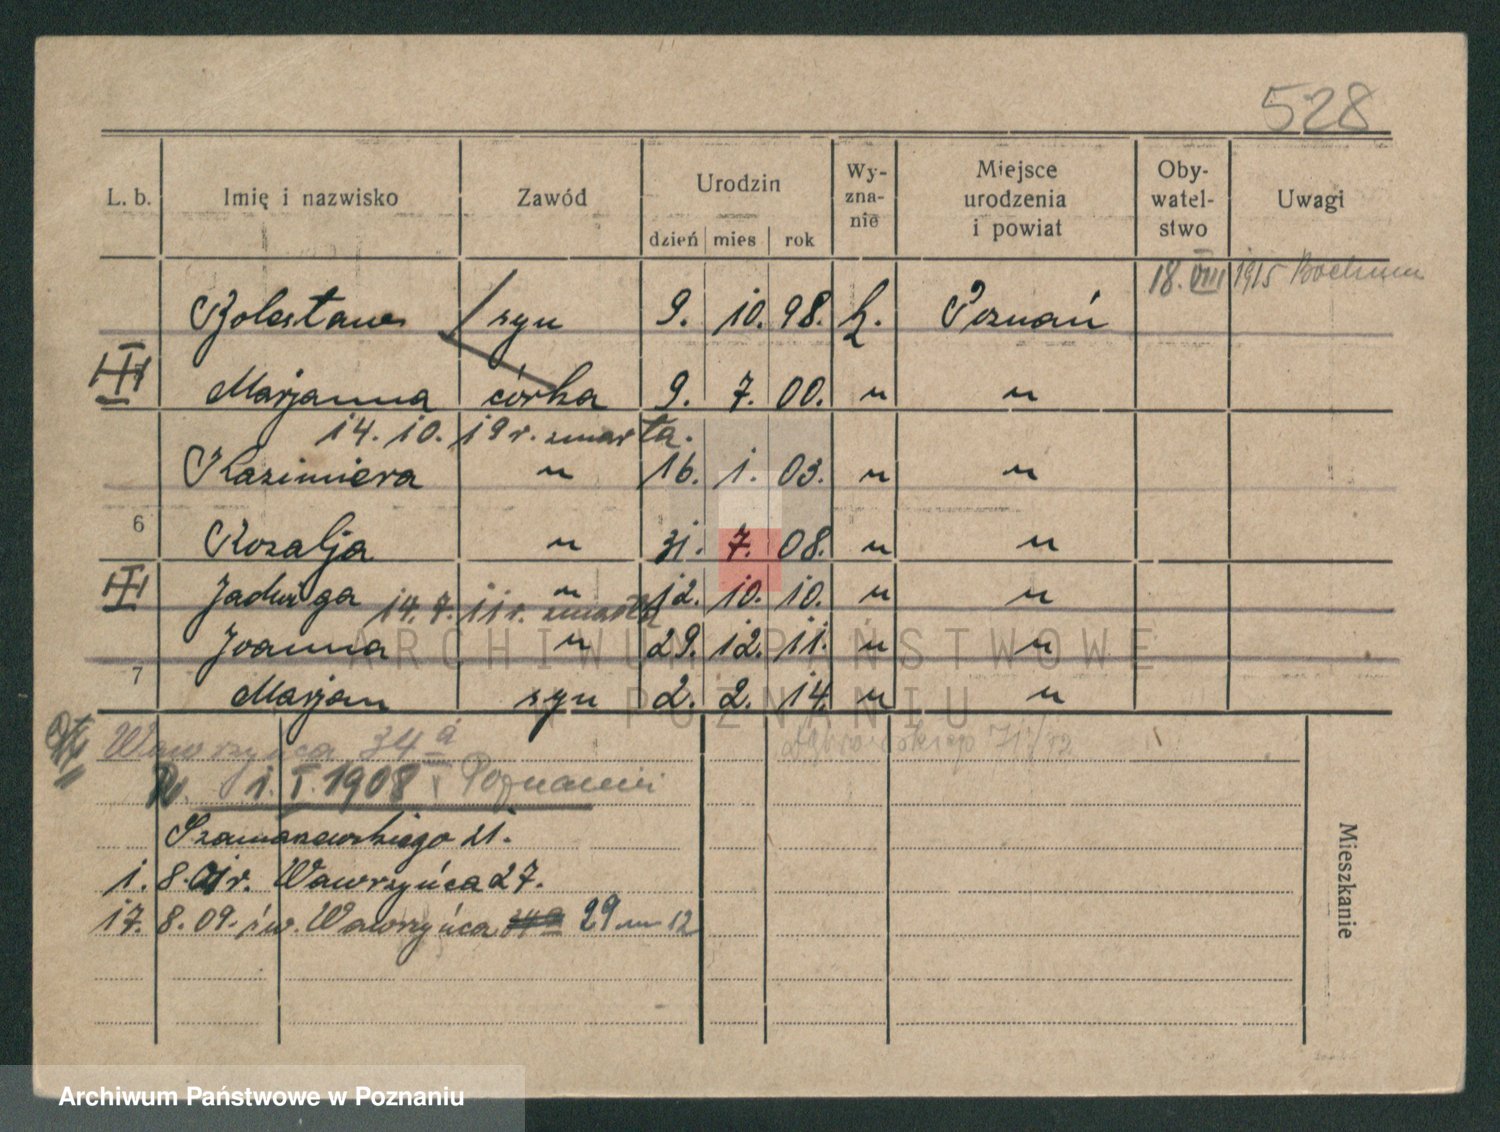 528
L. b. Imię i nazwisko Zawód Urodzin dzień mies rok Wy-zna-nie Miejsce urodzenia i powiat Oby-watel-stwo Uwagi
18. VIII 1915 Bochum
Bolesław syn 9. 10. 98. k. Poznań
III Marjanna córka 9. 7. 00. " "
14. 10. 19 r. zmarła.
Kazimiera " 16. 1. 03. " "
6 Rozalja " 31. 7. 08. " "
III Jadwiga " 12. 10. 10. " "
14. 7. 11 r. zmarła
Joanna " 29. 12. 11. " "
ARCHIWUM PAŃSTWOWE
7 Marjan syn 2. 2. 14. " "
POZNANIU
Wawrzyńca 34 a Dąbrowskiego 71/32
1. I. 1908 Poznaniu
Szamarzewskiego 21.
1. 8. 01 r. Wawrzyńca 27.
17. 8. 09. św. Wawrzyńca 29 m 12
Mieszkanie
Archiwum Państwowe w Poznaniu